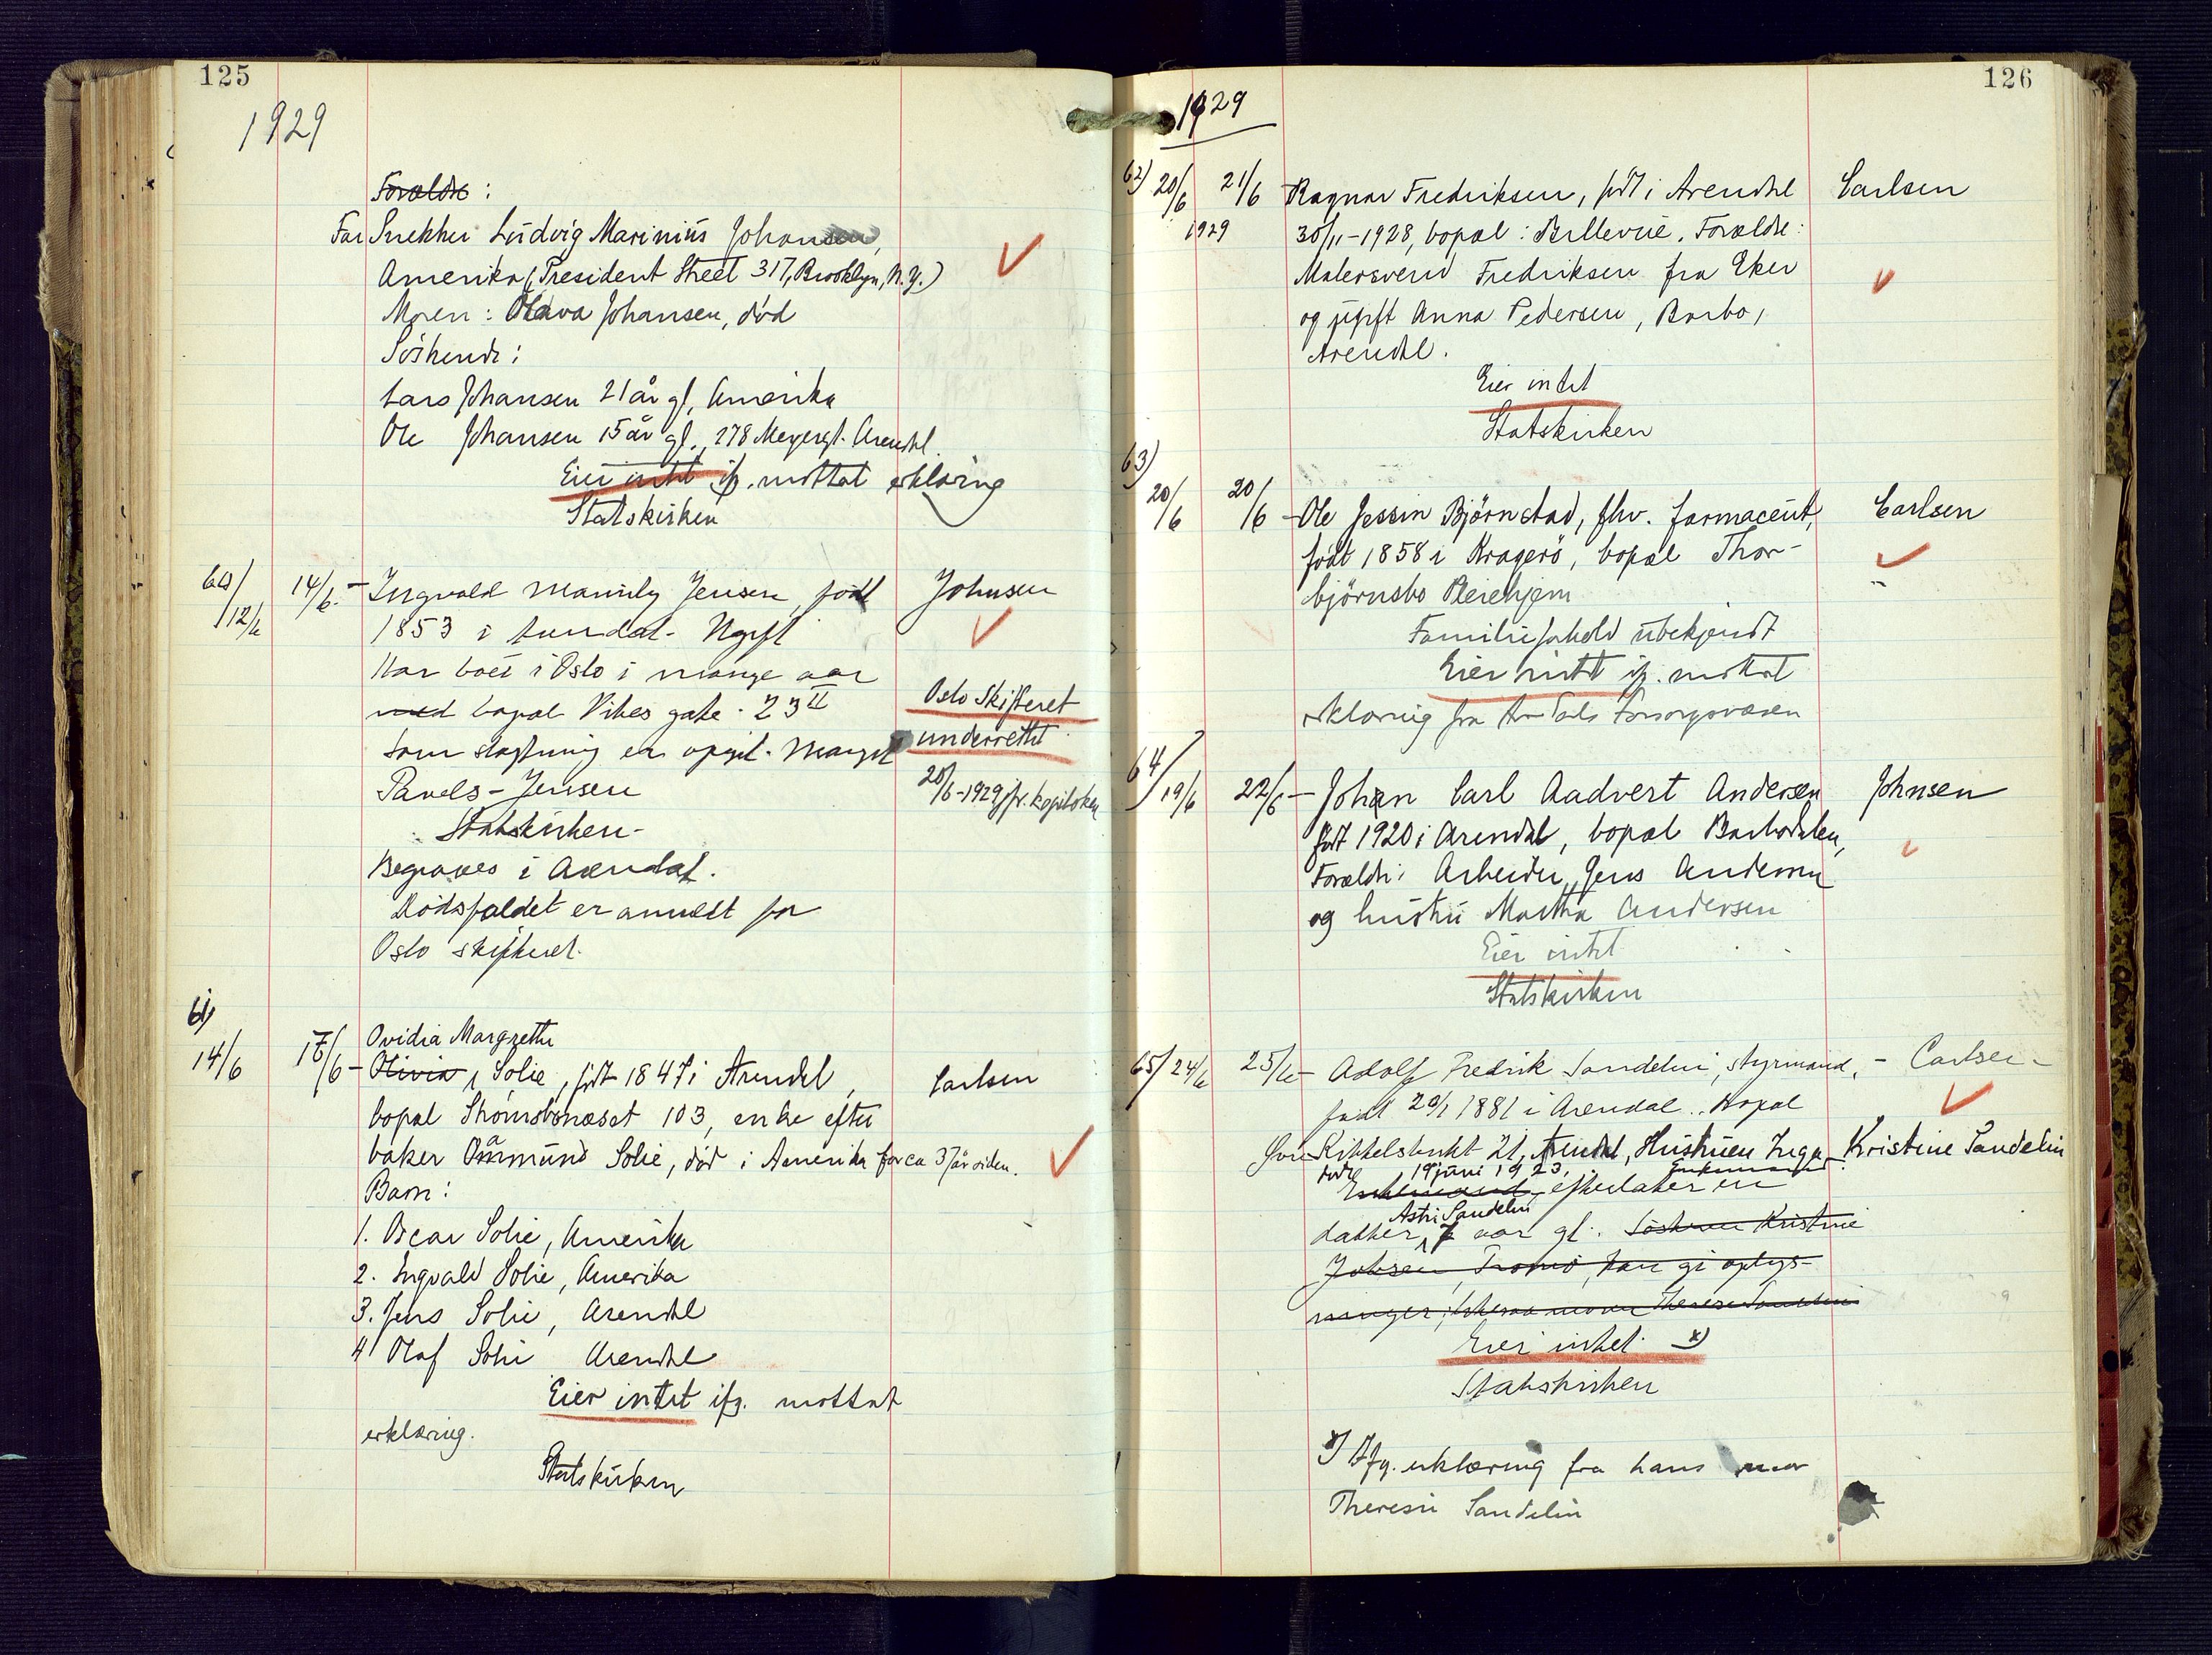 125
1929
Forældre :
Far Snekker Ludvig Marinius Johansen,
Amerika (President Street 317, Brooklyn, N.Y.)
Moren : Olava Johansen, død
Söskende :
Lars Johansen 21 år gl, Amerika
Ole Johansen 15 år gl., 278 Meyergt. Arendal.
Eier intet ifg. mottat erklæring
Statskirken
60/ 12/6 14/6 - Ingvald Jensen, født Johnsen
1853 i Arendal - Ugift
Har boet i Oslo i mange aar
med bopæl Vibes gate 23 II Oslo Skifteret
Som slegtning er opgit Margit underrettet
Pavels-Jensen 20/6-1929 jfr. kopiboken
Statskirken -
Begraves i Arendal.
Dødsfaldet er anmeldt for
Oslo skifteret.
61)
Ovidia Margrethe
14/6 18/6 - Olivia Solie, født 1847 i Arendal, Carlsen
bopæl Strømsbonæset 103, enke efter
baker Åmund Solie, død i Amerika for ca 37 år siden.
Barn :
1. Oscar Solie, Amerika
2. Ingvald Solie, Amerika
3. Jens Solie, Arendal
4 Olaf Solie Arendal
Eier intet ifg. mottat
erklæring.
Statskirken
126
1929
62) 20/6 1929 21/6 - Ragnar Fredriksen, født i Arendal Carlsen
30/11-1928, bopæl : Bellevue. Forældre :
Malersvend Fredriksen fra Eker
og ugift Anna Pedersen, Barbo,
Arendal.
Eier intet
Statskirken
63)
20/6 20/6 - Ole Jessin Björnstad, fhv. farmaceut, Carlsen
født 1858 i Kragerö, bopæl Thor-
björnsbo Pleiehjem
Familieforhold ubekjendt
Eier intet ifg. mottat
erklæring fra Arendals Forsorgsvæsen
64/ 19/6 22/6 - Johan Carl Aadvert Andersen Johnsen
født 1920 i Arendal, bopæl Barbodalen,
Forældre : Arbeider Jens Andersen
og hustru Martha Andersen
Eier intet
Statskirken
65/ 24/6 25/6 - Adolf Fredrik Sandelin, styrmand, - Carlsen -
født 20/1 1881 i Arendal. Bopæl
Øvre Kittelsbukt 21, Arendal, Hustruen Inga Kristine Sandelin
døde 19 juni 1923, Enkemand
Enkemand, efterlater en
Astri Sandelin
datter, 7 aar gl. Søsteren Kristine
Jobsen Tromø, kan gi oplys-
ninger, likesaa moren Therese Sandelin
Eier intet x)
Statskirken
x) Ifg. erklæring fra hans mor
Therese Sandelin